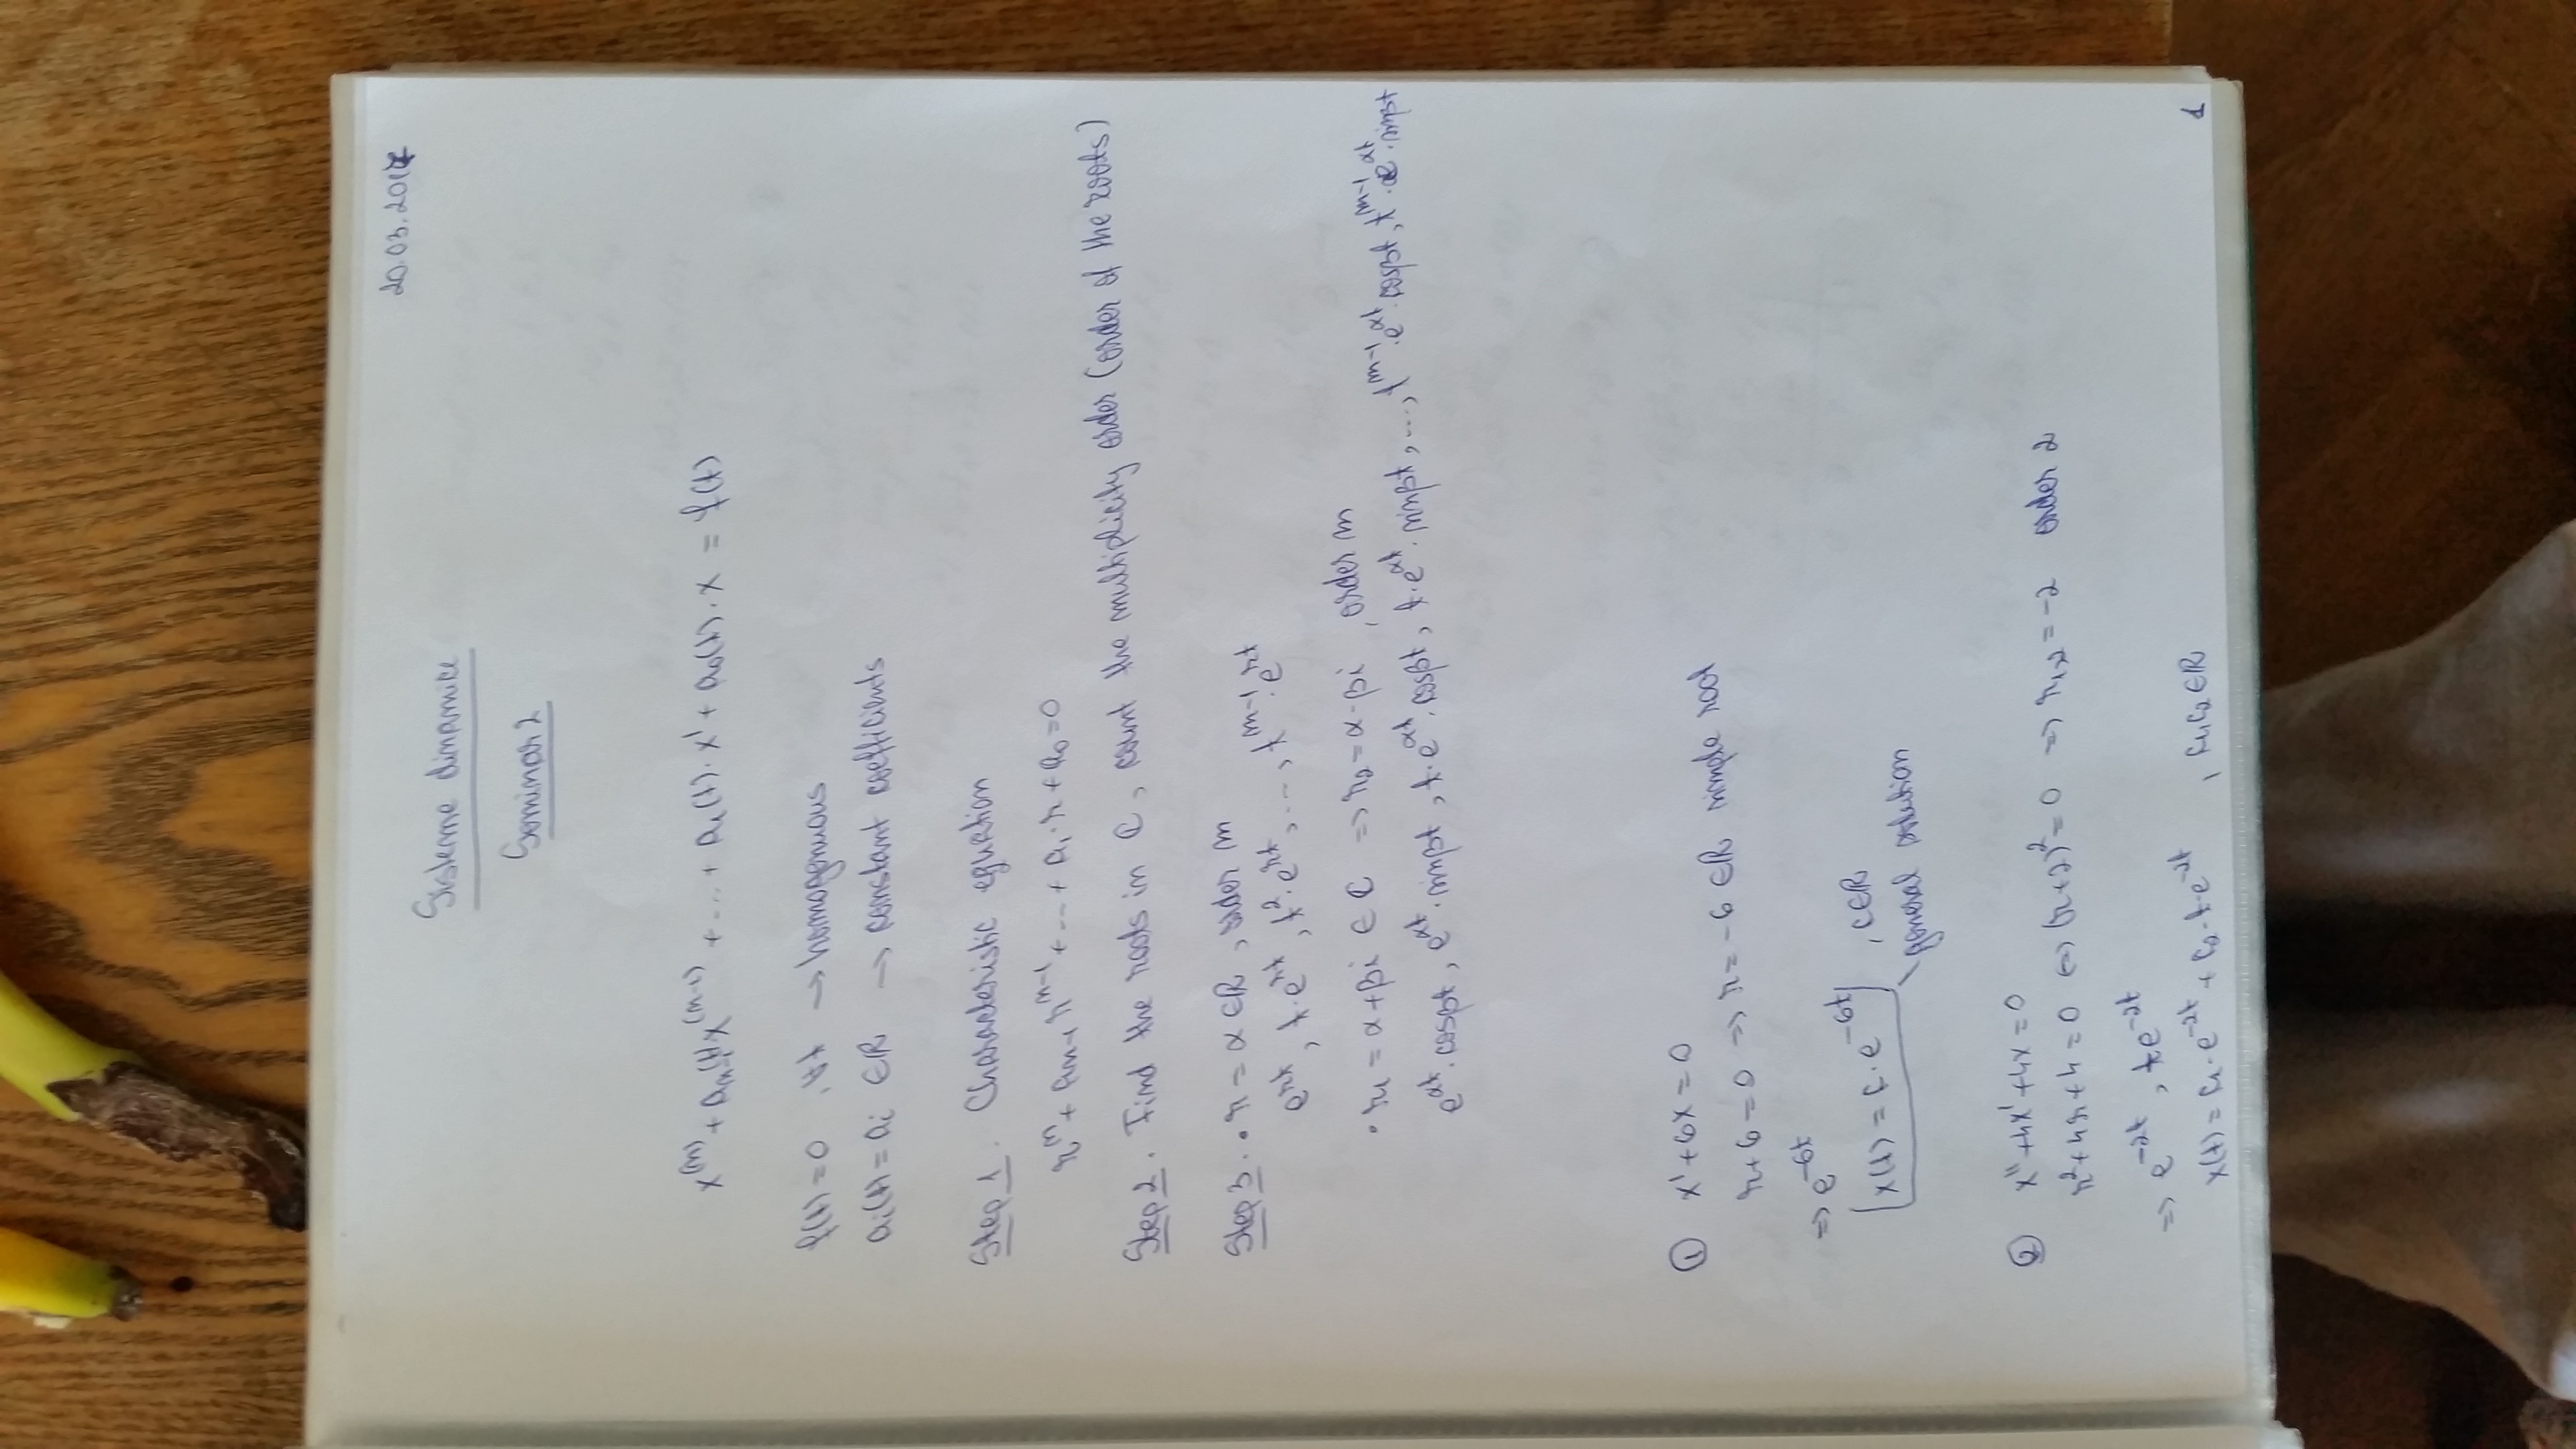 20.03.2017
Sisteme dinamice
Seminar 2
x^(n) + a_{n-1}(t) x^(n-1) + ... + a₁(t)·x' + a₀(t)·x = f(t)
f(t) = 0 , ∀t → homogenuous
aᵢ(t) = aᵢ ∈ ℝ → constant coefficients
Step 1. Characteristic equation
r^n + a_{n-1} r^{n-1} + ... + a₁·r + a₀ = 0
Step 2. Find the roots in ℂ, count the multiplicity order (order of the roots)
Step 3. • r = α ∈ ℝ, order m
e^{rt}, t·e^{rt}, t²·e^{rt}, ..., t^{m-1}·e^{rt}
• r₁ = α+βi ∈ ℂ => r₂ = α-βi , order m
e^{αt}·cosβt, e^{αt}·sinβt, t·e^{αt}·cosβt, t·e^{αt}·sinβt, ..., t^{m-1}·e^{αt}·cosβt, t^{m-1}·e^{αt}·sinβt
① x' + 6x = 0
r+6 = 0 => r = -6 ∈ ℝ simple root
=> e^{-6t}
x(t) = c·e^{-6t} , c∈ℝ
general solution
② x'' + 4x' + 4x = 0
r² + 4r + 4 = 0 <=> (r+2)² = 0 => r₁,₂ = -2 order 2
=> e^{-2t}, te^{-2t}
x(t) = c₁·e^{-2t} + c₂·t·e^{-2t} , c₁,c₂ ∈ ℝ
1